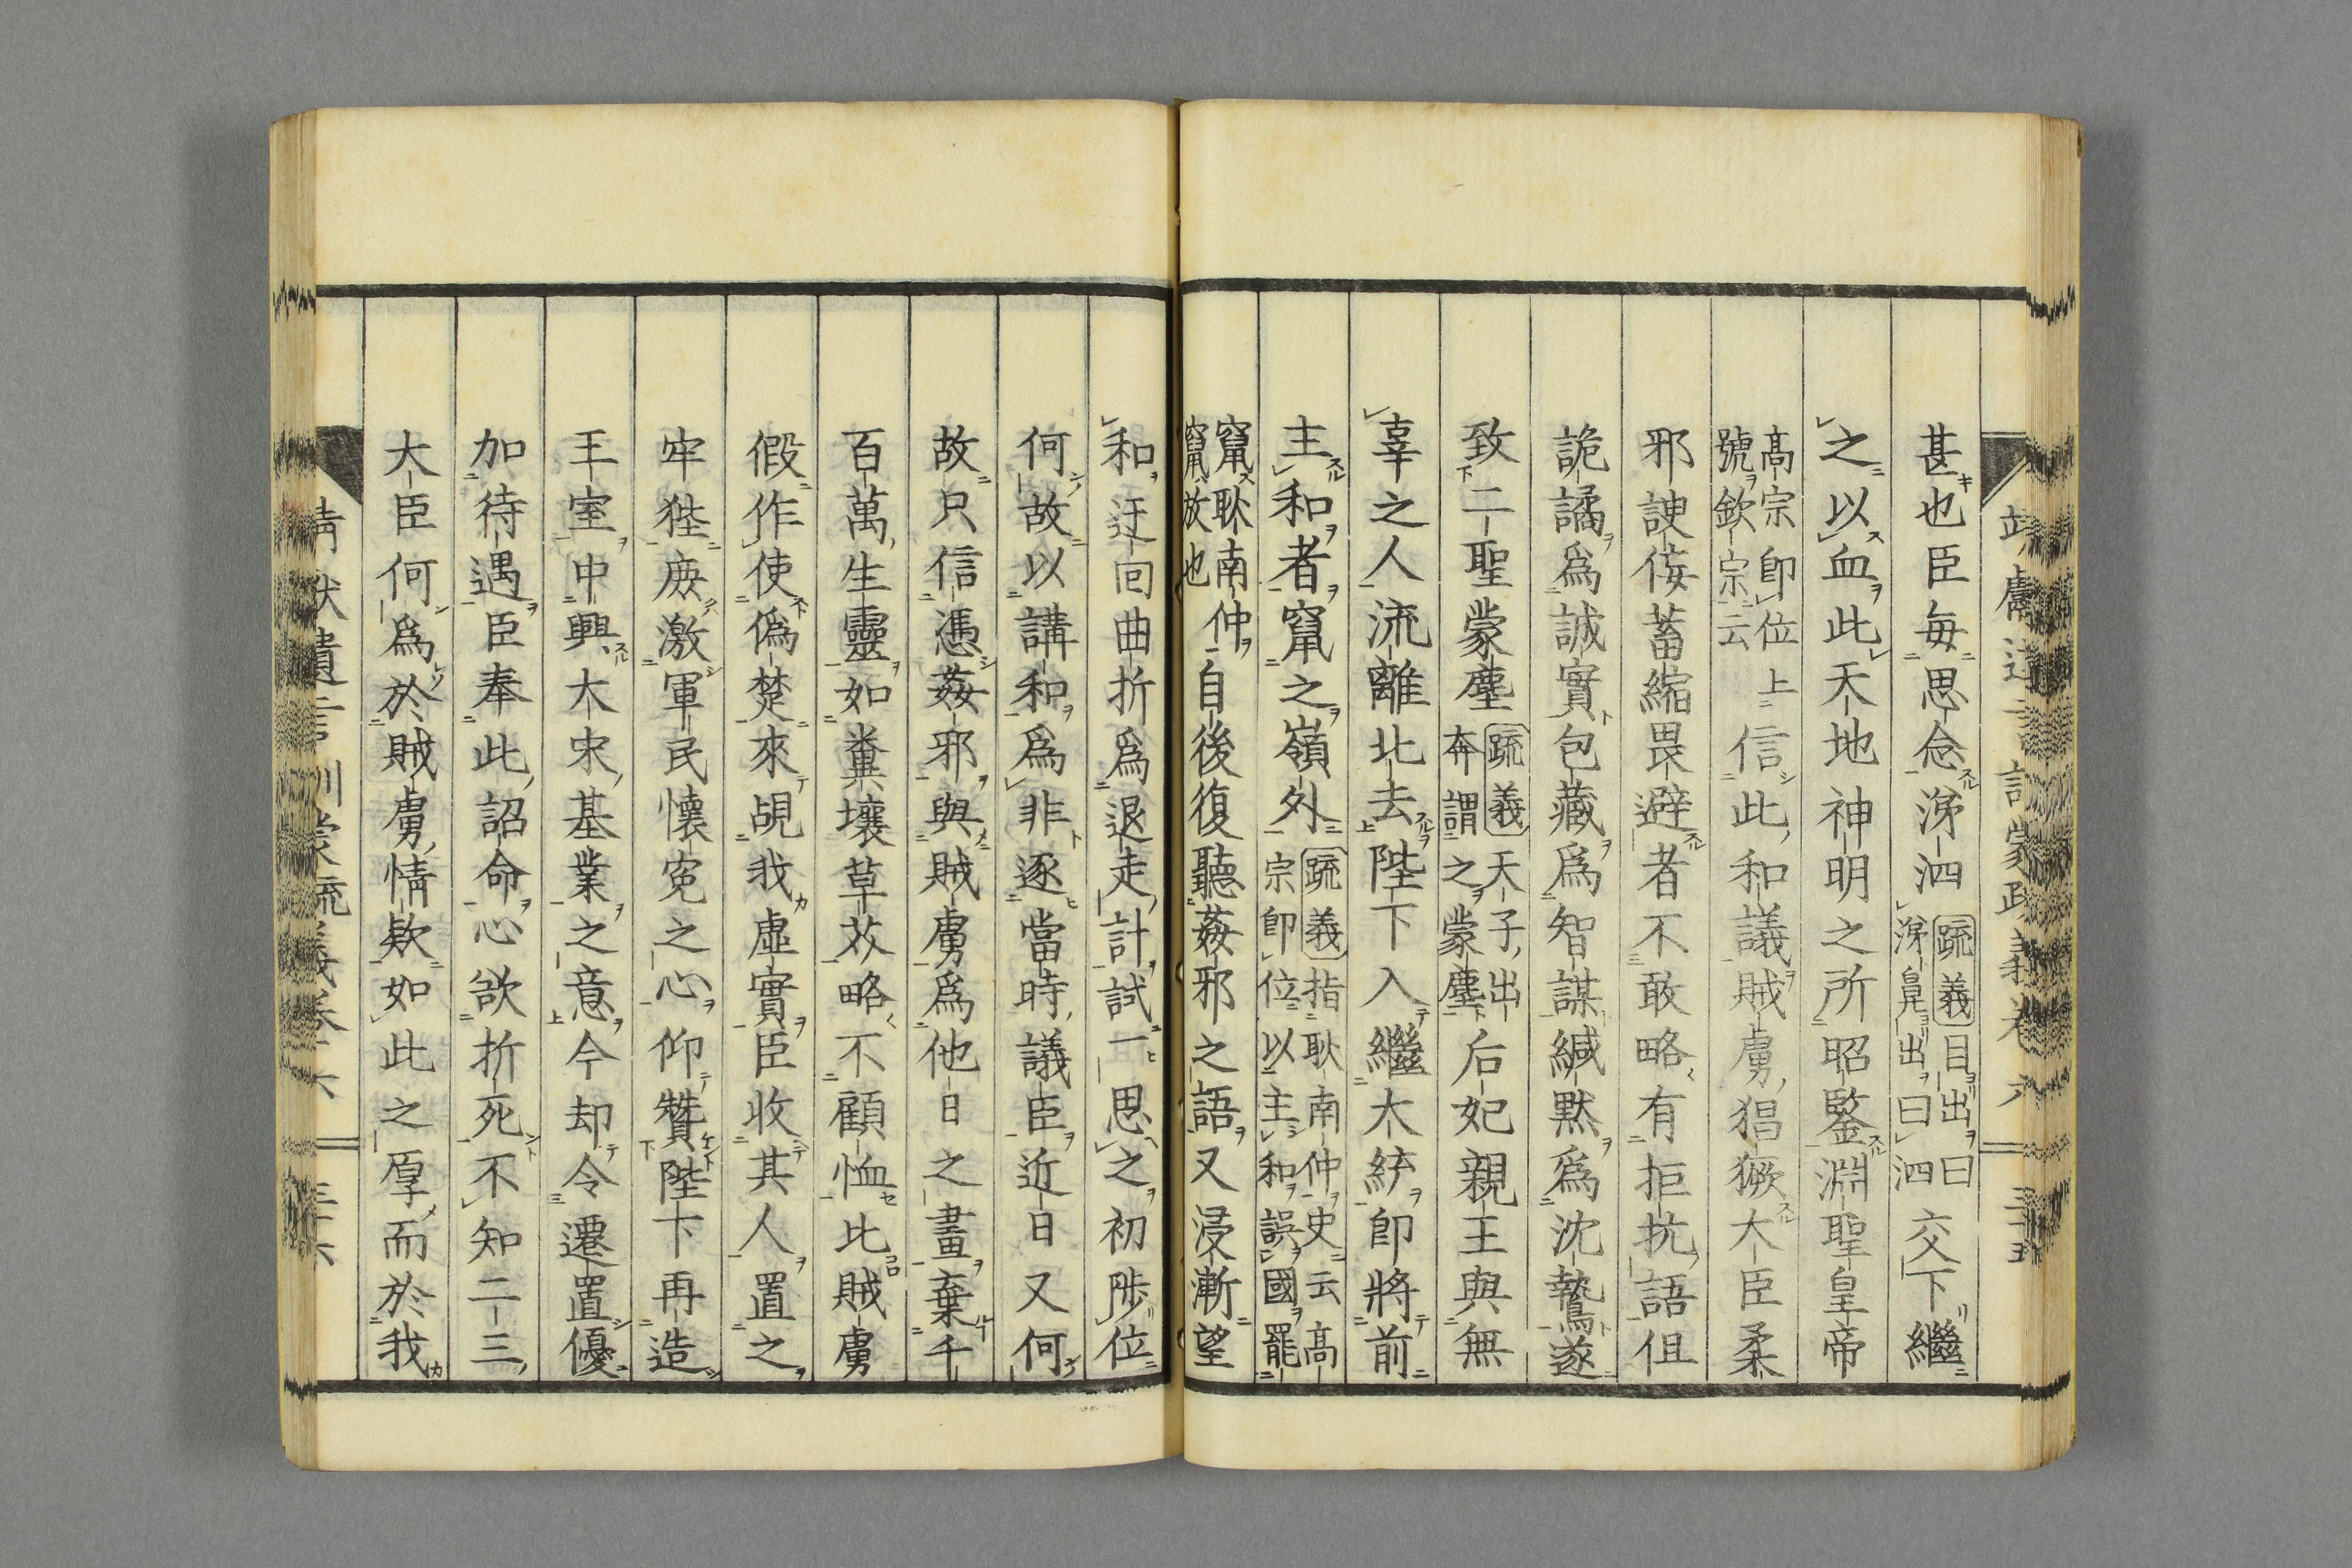 甚也臣毎思念涕泗疏義目出曰涕鼻出曰泗交下繼
之以血此天地神明之所昭鑒淵聖皇帝
高宗即位上號欽宗云信此和議賊虜猖獗大臣柔
邪諛侫蓄縮畏避者不敢略有拒抗語但
詭譎爲誠實包藏爲智謀緘默爲沈鷙遂
致二聖蒙塵疏義天子出奔謂之蒙塵后妃親王與無
辜之人流離北去陛下入繼大統即將前
主和者竄之嶺外疏義指耿南仲史云高宗即位以主和誤國罷
竄耿南仲竄放也自後復聽姦邪之語又浸漸望
和迂回曲折爲退走計試一思之初陟位
何故以講和爲非逐當時議臣近日又何
故只信憑姦邪與賊虜爲他日之畫棄千
百萬生靈如糞壤草芥略不顧恤比賊虜
假作使僞楚來覘我虛實臣收其人置之
牢狴庻激軍民懷寃之心仰贊陛下再造
王室中興大宋基業之意今却令遷置優
加待遇臣奉此詔命心欲折死不知二三
大臣何爲於賊虜情欵如此之厚而於我